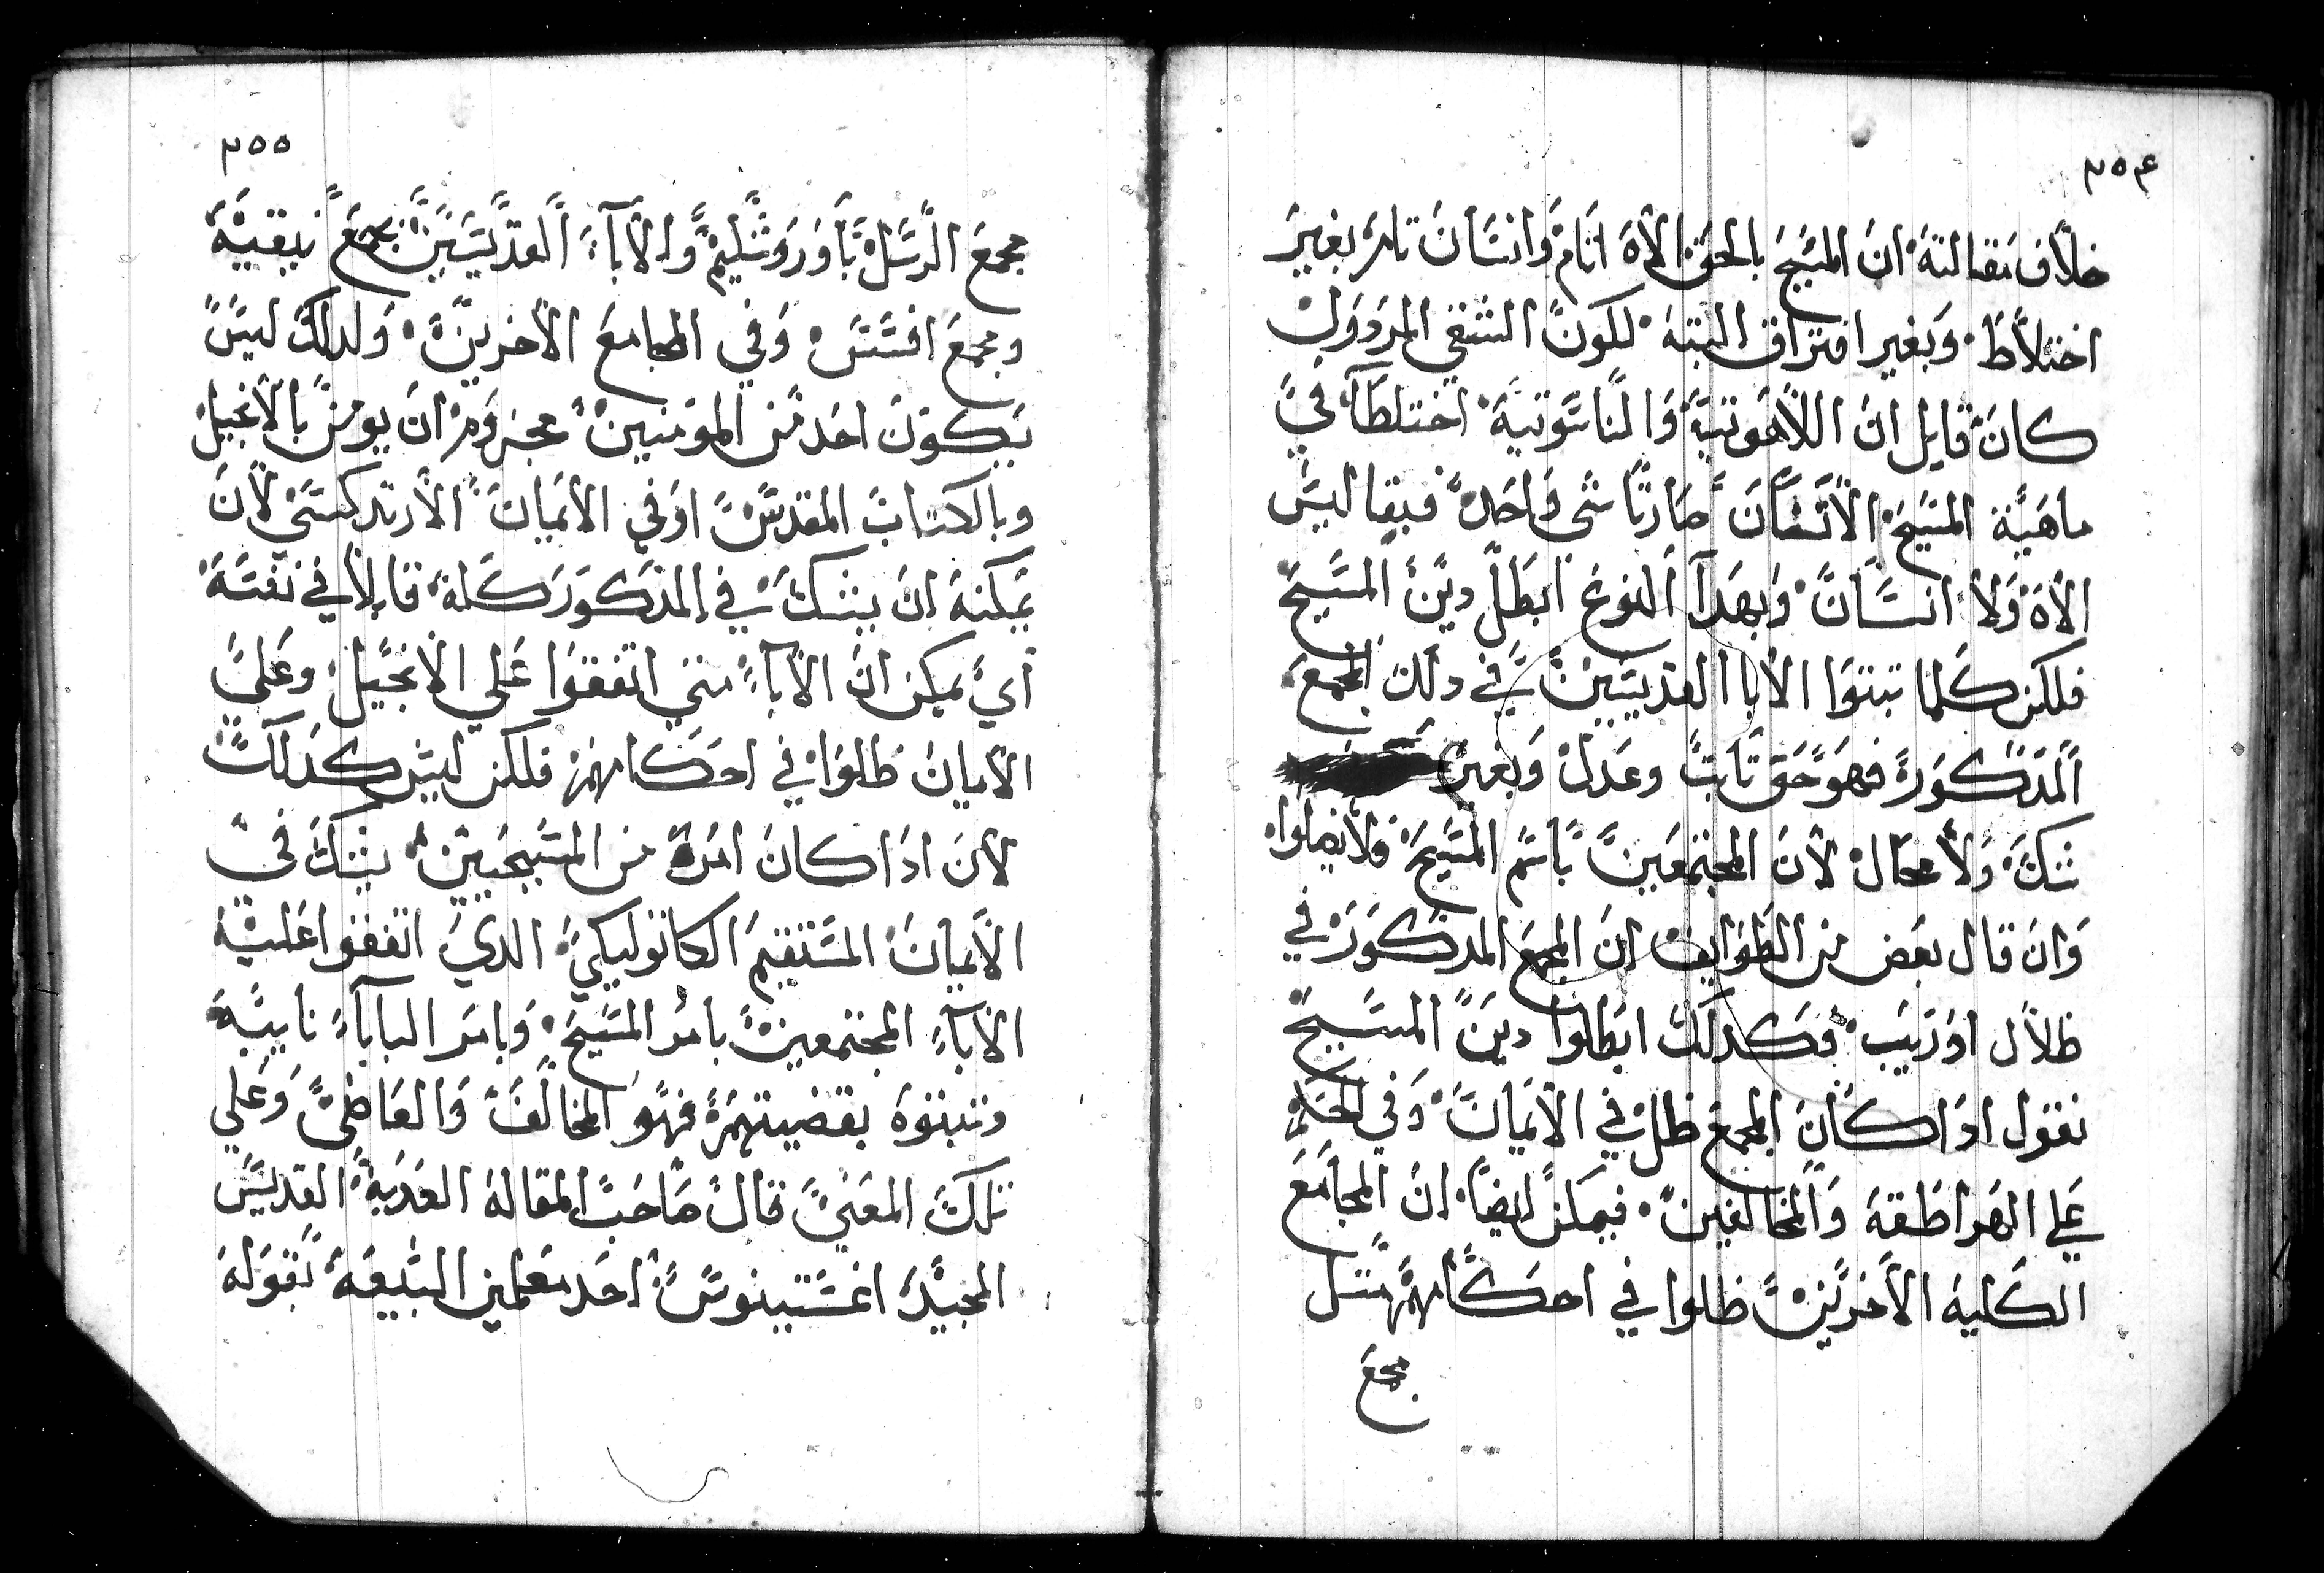 ٢٥٤
خلاف مقالته ان المسيح بالحق الاه اتام وانسان تام بغير
اختلاط وبغير افتراق البتة لكون الشقي المردول
كان قايل ان اللاهوتية والناسوتية اختلطا في
ماهية المسيح الانسان صارتا شي واحد فبقا ليس
الاه ولا انسان وبهدا النوع ابطل دين المسيح
فلكن كلما تبتوا الابا القديسين في دلك المجمع
المدكورة فهو حق تابت وعدل وبغير
شك ولا محال لان المجتمعين باسم المسيح ولا
وان قال بعض من الطوايف ان المجمع المدكور في
ظلال او ريب وكدلك ابطلوا دين المسيح
نقول ادا كان المجمع ظل في الايمان وفي
علي الهراطقة والمخالفين فيمكن ايضا ان المجامع
الكلية الاخرين ظلوا في احكامهم متل
مجمع
٢٥٥
مجمع الرسل باورشليم والابآء القديسين بمجمع نيقية
ومجمع افسس وفي المجامع الاخرين ولدلك ليس
يكون احد من المومنين مجزوم ان يومن بالانجيل
وبالكتاب المقدس او في الايمان الارتدكسي لان
يمكنه ان يشك في المدكور كله قايلا في نفسه
اي يمكن ان الابآء متي اتفقوا علي الانجيل وعلي
الايمان ظلوا في احكامهم فلكن ليس كدلك
لان ادا كان امرة من المسيحيين يشك في
الايمان المستقيم الكاتوليكي الدي اتفقوا عليه
الابآء المجتمعين بامر المسيح وبامر البابآء نايبه
وتبتوه بقضيتهم فهو المخالف والعاضي وعلي
تلك المعني قال صاحب المقالة العدبة القديس
المجيد اغستينوس احد معلمين البيعة بقوله